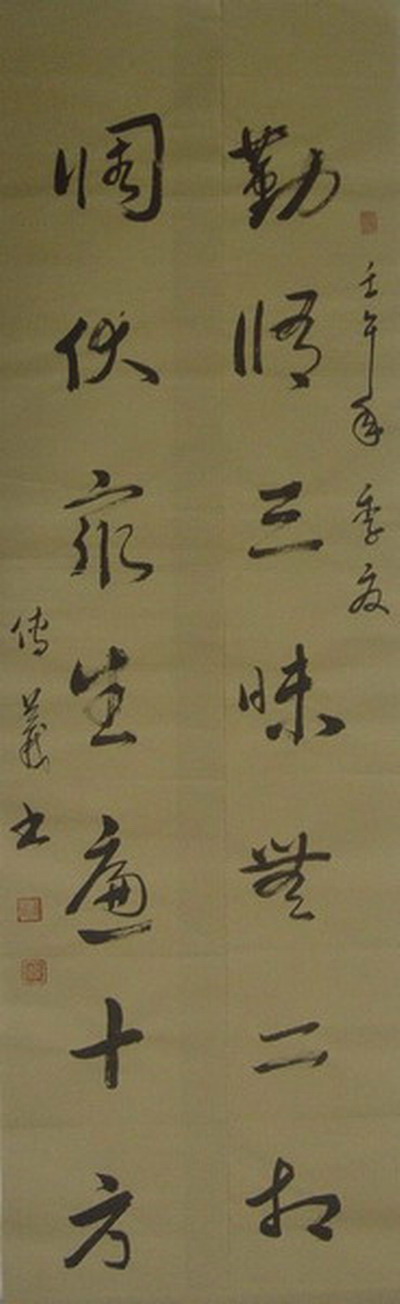 壬午年季夏
勤脩三昧無二相
調伏眾生遍十方
傳義書